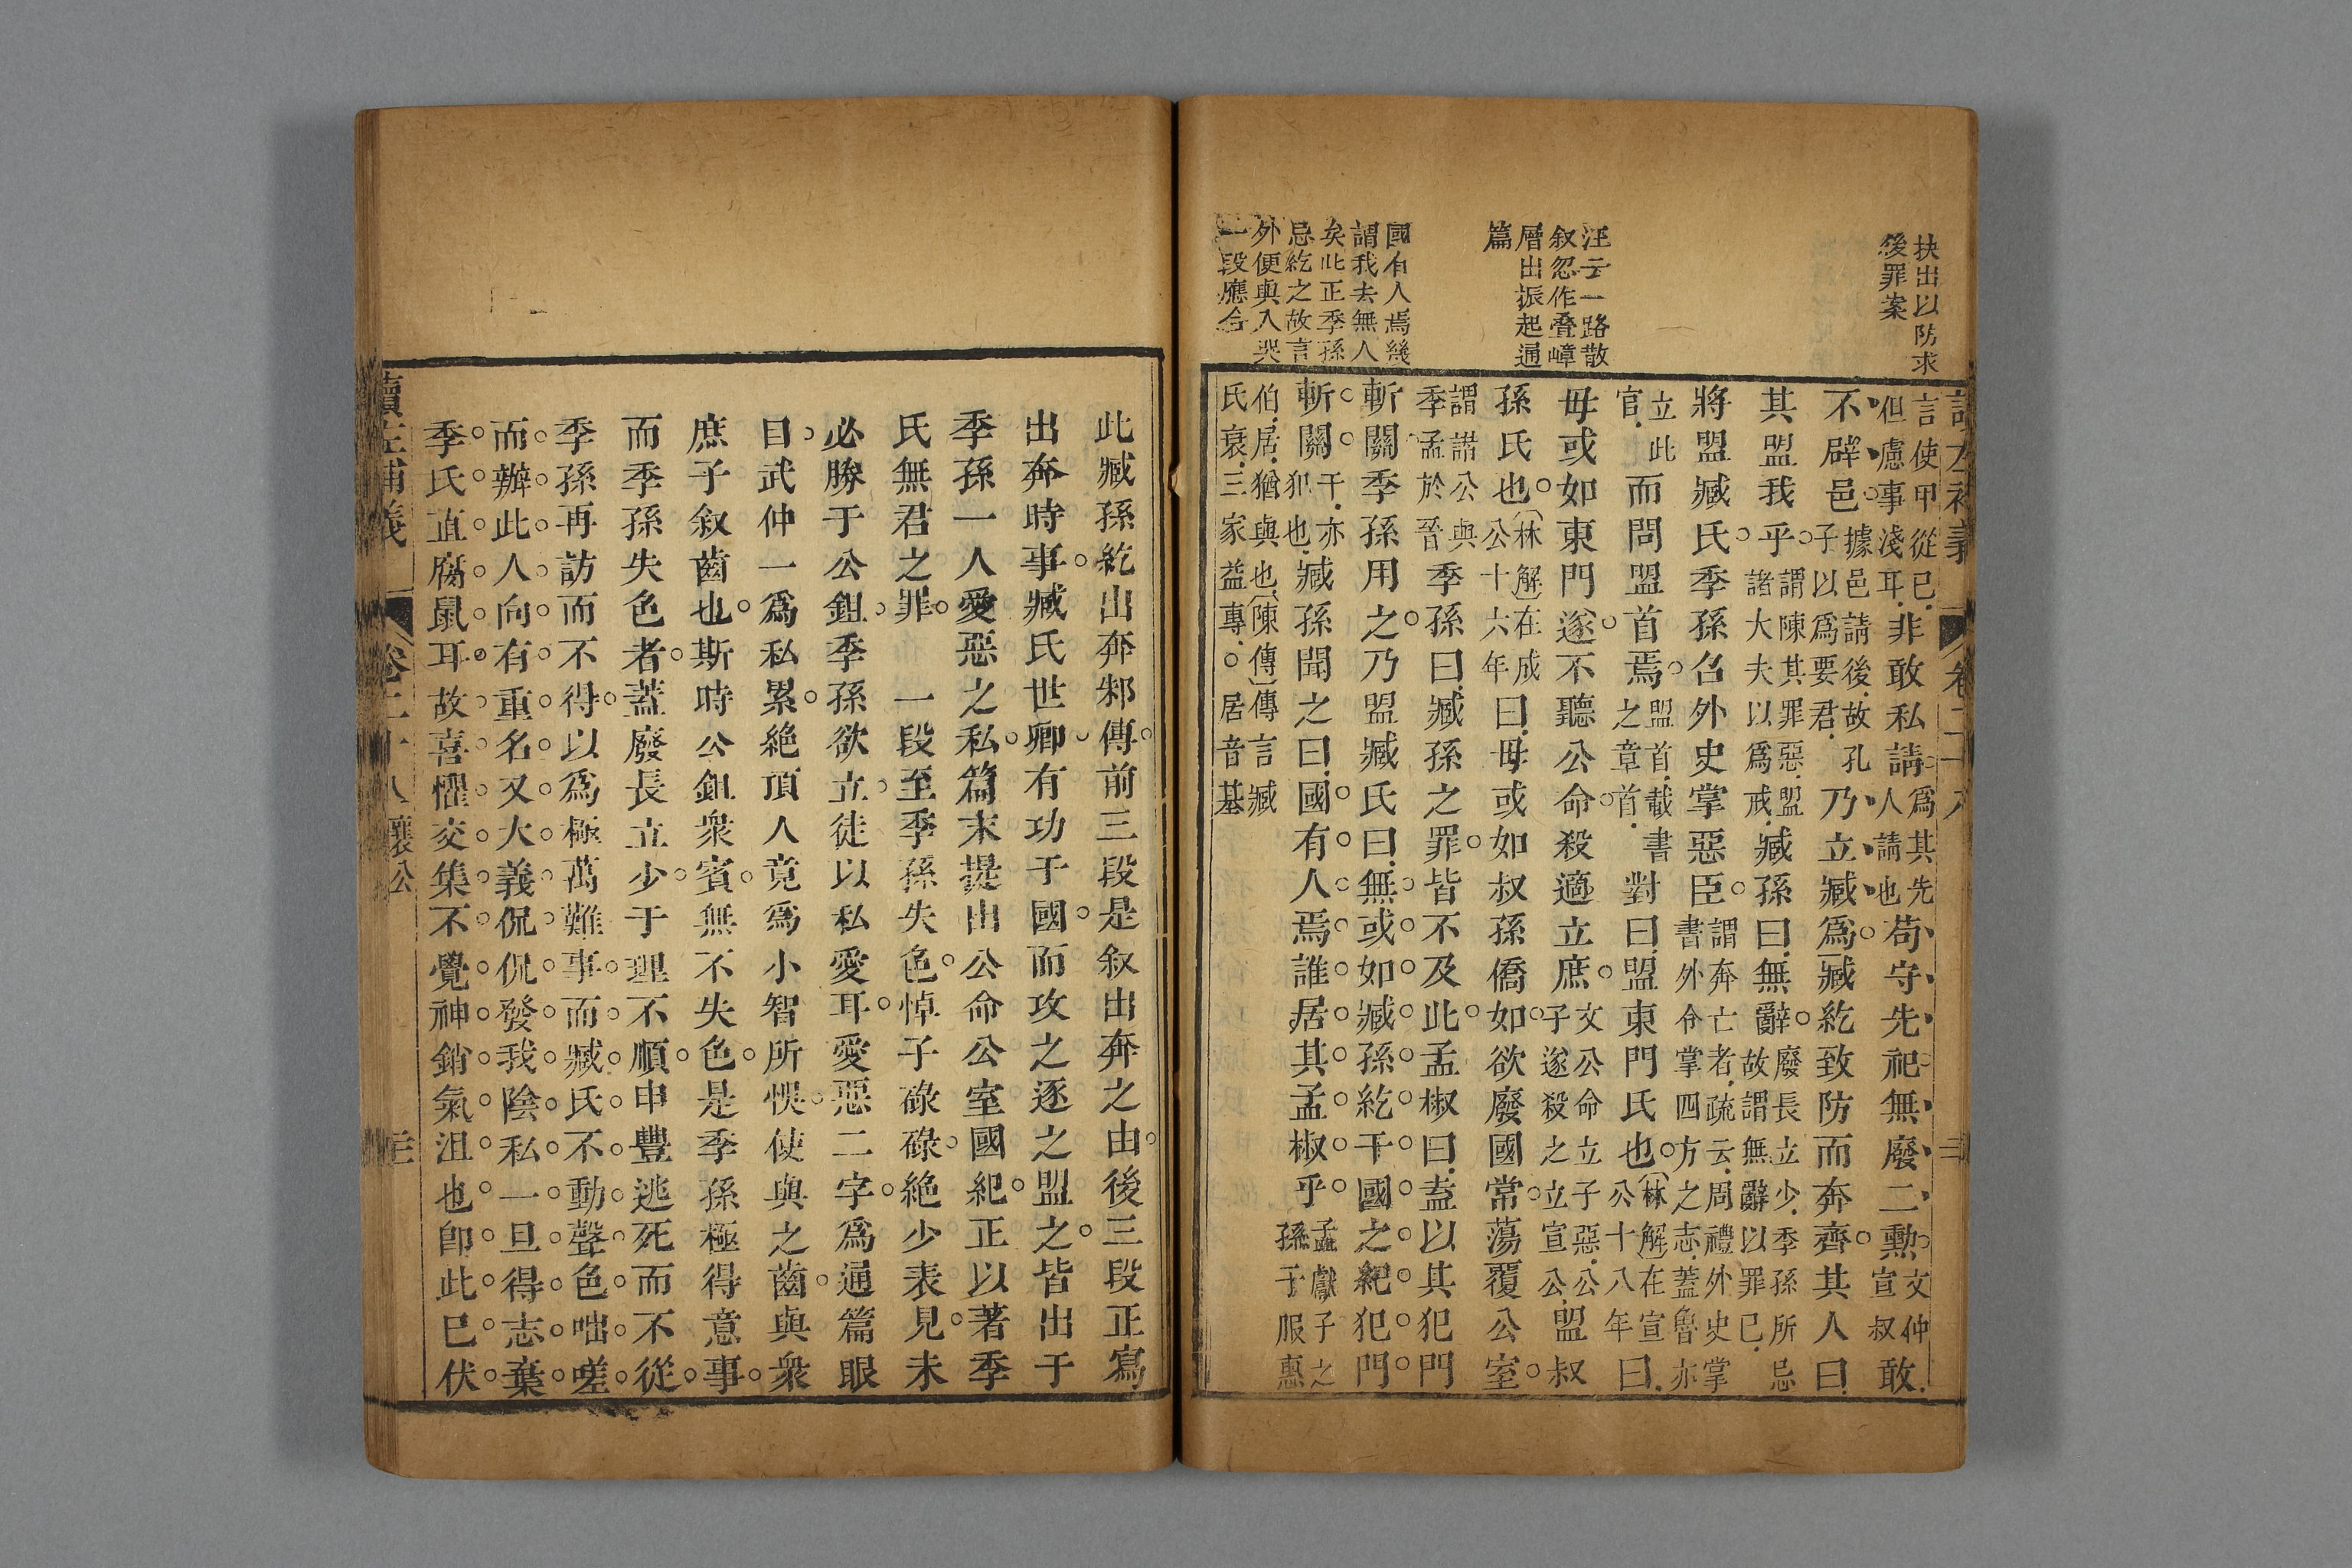 抉出以防求
後罪案
汪云一路散
叙忽作疊嶂
層出振起通
篇
國有人焉幾
謂我去無人
矣此正季孫
忌紇之故言
外便與入哭
一段應合
讀左補義 卷二十八
言使甲從已
但慮事淺耳非敢私請爲其先
人請也苟守先祀無廢二勳文仲
宣叔敢
不辟邑據邑請後故孔
子以爲要君乃立臧爲臧紇致防而奔齊其人曰
其盟我乎謂陳其罪惡盟
諸大夫以爲戒臧孫曰無辭廢長立少季孫所忌
故謂無辭以罪已
將盟臧氏季孫召外史掌惡臣謂奔亡者疏云周禮外史掌
書外令掌四方之志蓋魯亦
立此
官而問盟首焉盟首載書
之章首對曰盟東門氏也林解在宣
公十八年曰
毋或如東門遂不聽公命殺適立庶文公命立子惡公
子遂殺之立宣公盟叔
孫氏也林解在成
公十六年曰毋或如叔孫僑如欲廢國常蕩覆公室
謂譖公與
季孟於晉季孫曰臧孫之罪皆不及此孟椒曰盍以其犯門
斬關季孫用之乃盟臧氏曰無或如臧孫紇干國之紀犯門
斬關干亦
犯也臧孫聞之曰國有人焉誰居其孟椒乎孟獻子之
孫子服惠
伯居猶與也陳傳傳言臧
氏衰三家益專○居音基
此臧孫紇出奔邾傳前三段是叙出奔之由後三段正寫
出奔時事臧氏世卿有功于國而攻之逐之盟之皆出于
季孫一人愛惡之私篇末提出公命公室國紀正以著季
氏無君之罪 一段至季孫失色悼子碌碌絶少表見未
必勝于公鉏季孫欲立徒以私愛耳愛惡二字爲通篇眼
目武仲一爲私累絶頂人竟爲小智所悞使與之齒與衆
庶子叙齒也斯時公鉏衆賓無不失色是季孫極得意事
而季孫失色者蓋廢長立少于理不順申豐逃死而不從
季孫再訪而不得以爲極萬難事而臧氏不動聲色咄嗟
而辦此人向有重名又大義侃侃發我陰私一旦得志棄
季氏直腐鼠耳故喜懼交集不覺神銷氣沮也卽此已伏
讀左補義 卷二十八 襄公